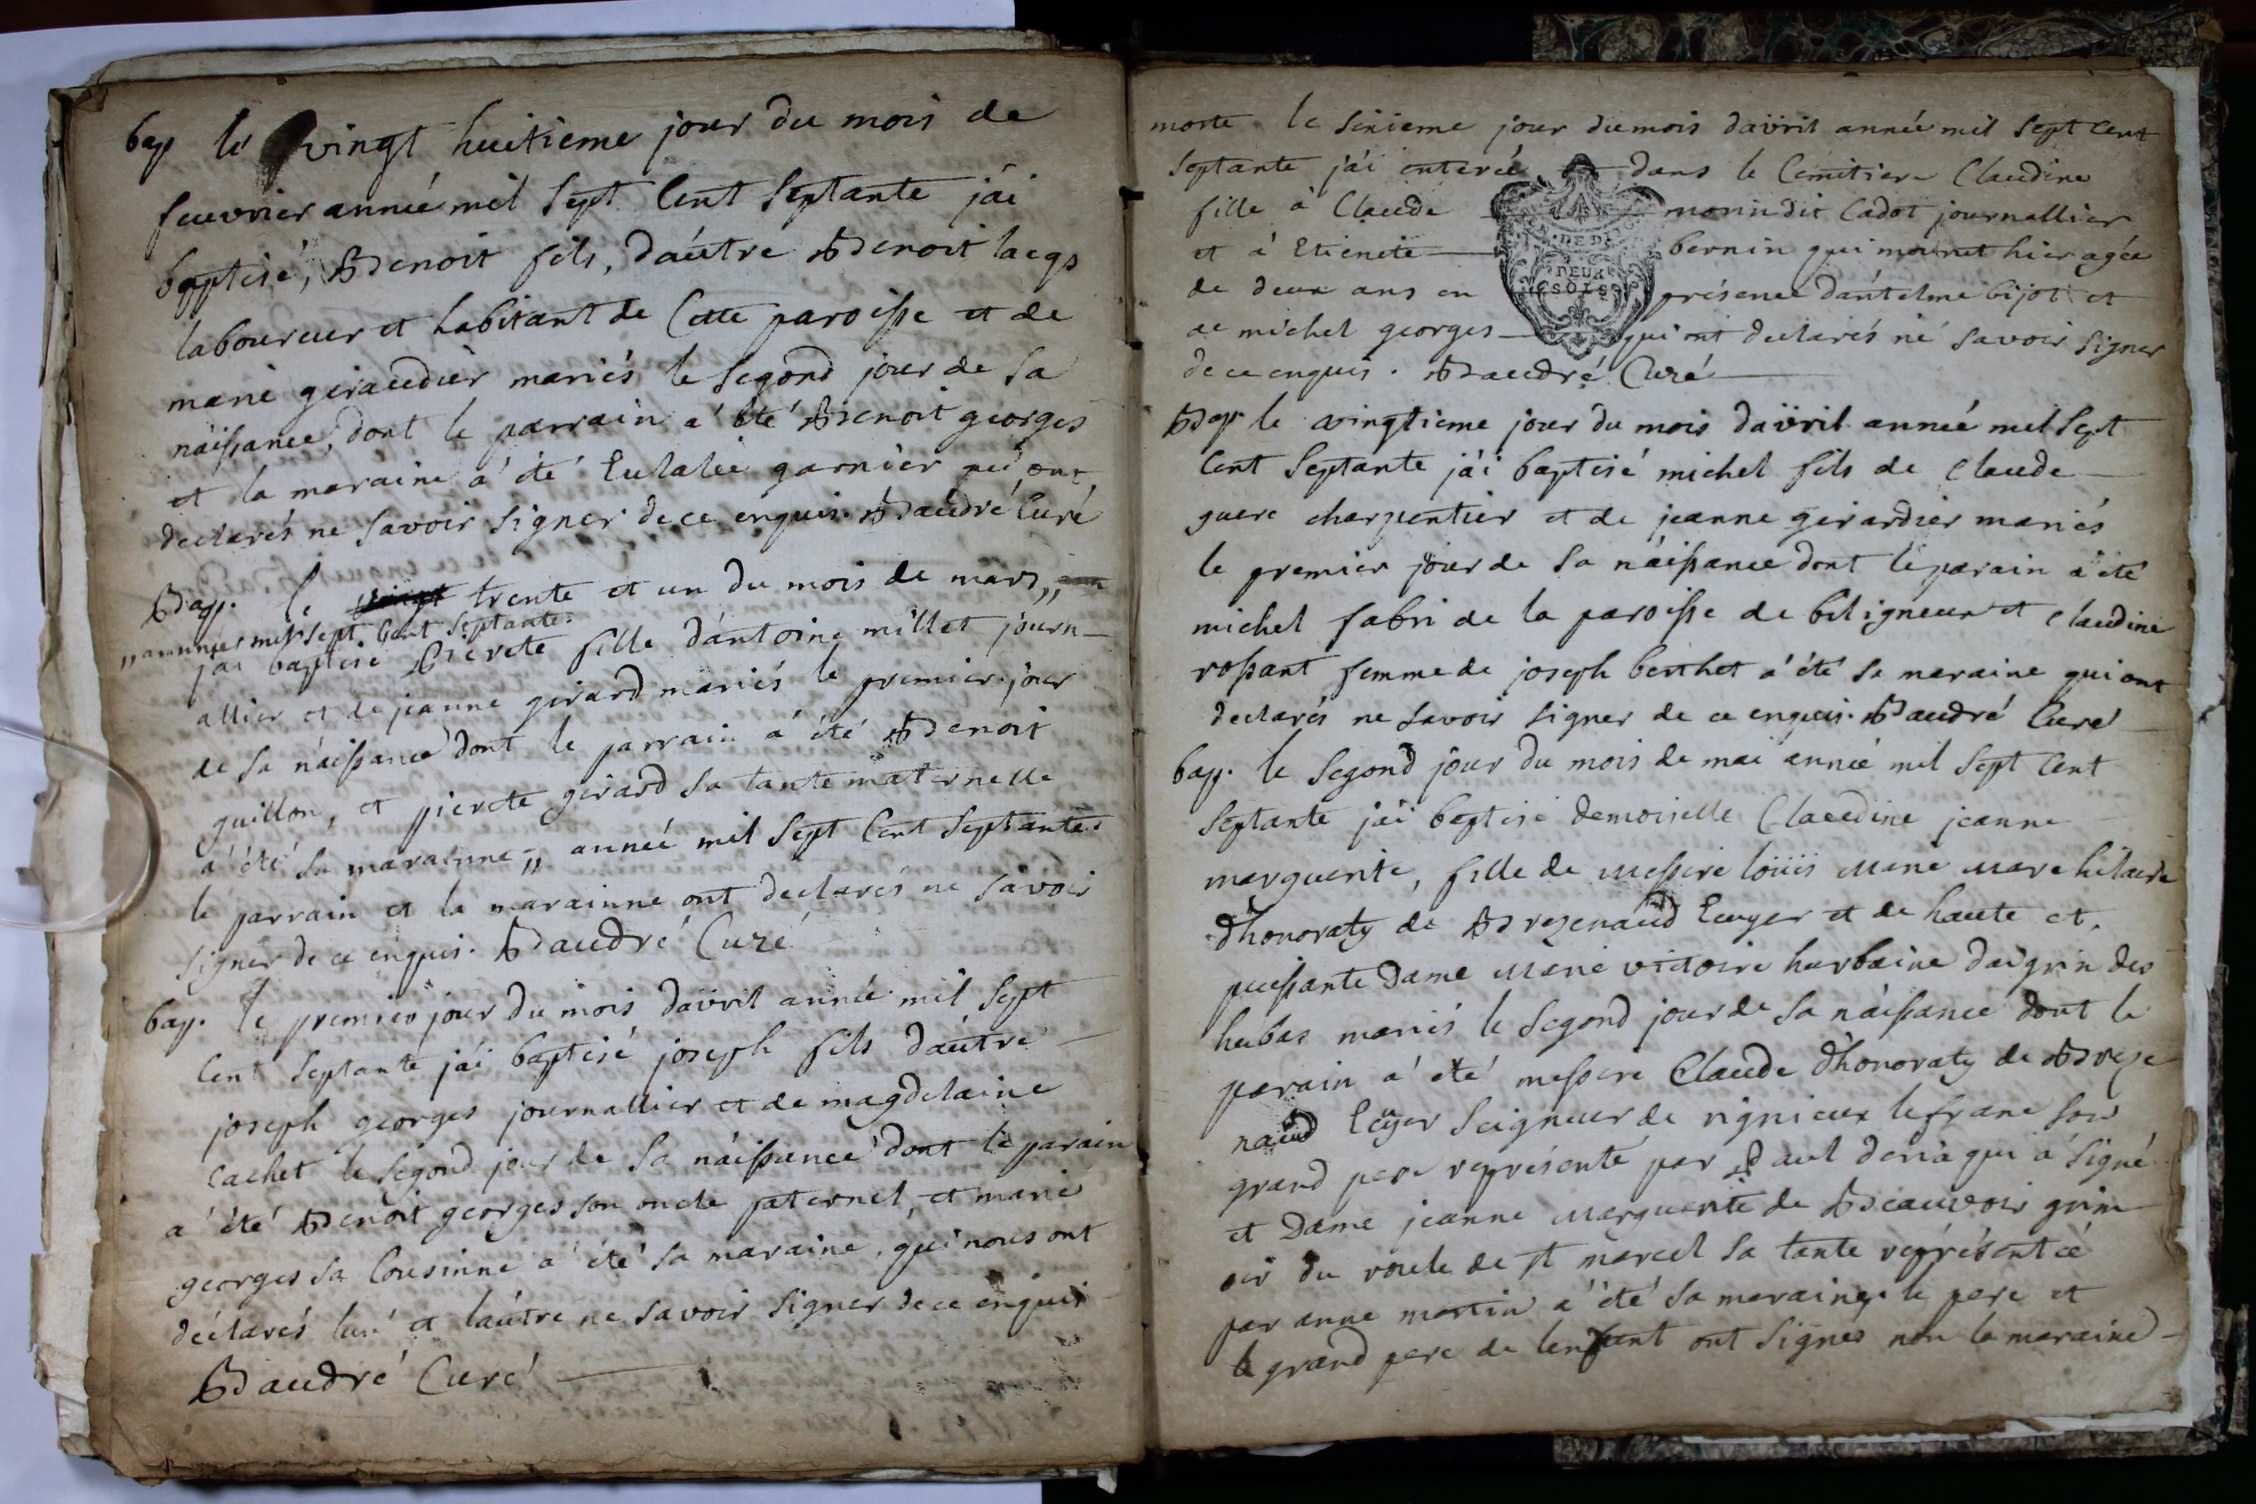 bap le vingt huitieme jour du mois de
feuvrier année mil sept Cent Septante jái
baptisé, Benoit fils, daútre Benoit lacqs
laboureur et habitant de Cette paroisse et de
marie giraudier mariés le segond jour de sa
náissance, dont le parrain a' été Benoit georges
et la maraine a' été Eulalie garnier qui ont
declarés ne savoir signer de ce enquis. Baudré Curé
Bap. le trente et un du mois de mars,,
,, année mil sept Cent Septante.
jái baptisé Pierete fille dántoine millet journ-
allier et de jeanne girard mariés le premier jour
de sa náissance dont le parrain á été Benoit
guillon, et pierete girard sa tante maternelle
a' été sa marainne ,, année mil sept Cent Septante.
le parrain et la marainne ont declarés ne savoir
signer de ce enquis. Baudré Curé
bap. le premier jour du mois davril année mil sept
Cent Septante jái baptisé joseph fils daútre
joseph georges journallier et de magdelaine
Cachet le segond jour de sa náissance dont le parain
a' été Benoit georges son oncle paternel, et marie
georges sa Cousinne a' été sa maraine, qui nous ont
déclarés lun' et laútre ne savoir signer de ce enquis
Baudré Curé
morte. le sixieme jour du mois davril année mil sept Cent
Septante jái enterée dans le Cémitiere Claudine
fille á Claude morin dit Cadot journallier
et á Etienete bernin qui mourut hier agée
de deux ans en présence dántelme bijot et
de michel georges qui ont declarés né savoir signer
de ce enquis. Baudré Curé
DE DIJON
DEUX
SOLS
Bap. le vingtieme jour du mois davril année mil sept
Cent Septante jái baptisé michel fils de Claude
guere charpentier et de jeanne girardier mariés
le premier jour de sa náissance dont le parain a été
michel fabri de la paroisse de biligneux et Claudine
rossant femme de joseph berthet a' été sa maraine qui ont
declarés ne savoir signer de ce enquis. Baudré Curé
bap. le segond jour du mois de mai année mil sept Cent
Septante jái baptisé demoiselle Claudine jeanne
marguerite, fille de Messire loüis Marie Marc hilaire
dhonoraty de Brezenaud Ecuyer et de haute et
puissante Dame Marie victoire hurbaine daigrin des
hubas mariés le segond jour de sa náissance dont le
parain a' été messire Claude dhonoraty de Breze
naud Ecÿer Seigneur de rignieux lefranc son
grand pere représenté par Paul deria qui a' signé
et Dame jeanne Marguerite de Beauvoir grim
oir du roule de st marcel sa tante représentée
par anne martin a' été sa maraine. le pere et
le grand pere de lenfant ont signés non la maraine